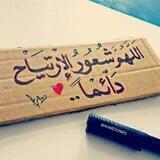 اللهم شعور الإرتياح
دائماً
@AHMEDOMAR